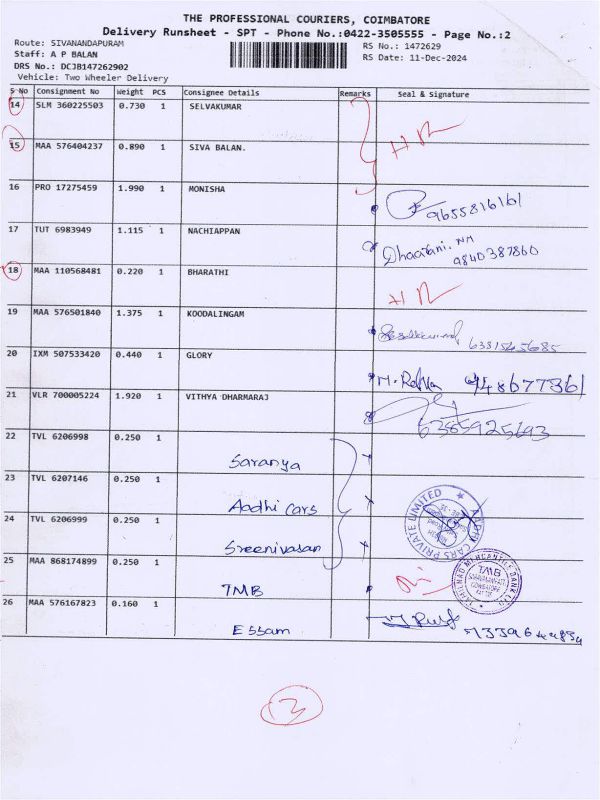 THE PROFESSIONAL COURIERS, COIMBATORE
Delivery Runsheet - SPT - Phone No.:0422-3505555 - Page No.:2
Route: SIVANANDAPURAM
Staff: A P BALAN
DRS No.: DCJB147262902
Vehicle: Two Wheeler Delivery
RS No.: 1472629
RS Date: 11-Dec-2024
S No Consignment No Weight PCS Consignee Details Remarks Seal & Signature
14 SLM 360225503 0.730 1 SELVAKUMAR
15 MAA 576404237 0.890 1 SIVA BALAN.
16 PRO 17275459 1.990 1 MONISHA 9655816161
17 TUT 6983949 1.115 1 NACHIAPPAN
9840387860
18 MAA 110568481 0.220 1 BHARATHI
19 MAA 576501840 1.375 1 KOODALINGAM 6381545685
20 IXM 507533420 0.440 1 GLORY
21 VLR 700005224 1.920 1 VITHYA DHARMARAJ
22 TVL 6206998 0.250 1 Saranya
23 TVL 6207146 0.250 1 Aadhi cars
24 TVL 6206999 0.250 1 Sreenivasan
AADHI CARS PRIVATE LIMITED
25 MAA 868174899 0.250 1 TMB
TAMILNAD MERCANTILE BANK LTD
TMB
26 MAA 576167823 0.160 1 Essam
13